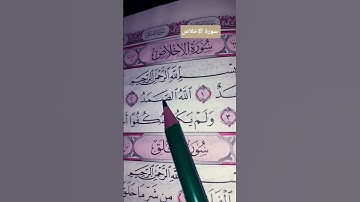 سورة الاخلاص
سُورَةُ الإِخْلَاصِ
بِسْمِ اللَّهِ الرَّحْمَٰنِ الرَّحِيمِ
دٌ ١ اللَّهُ الصَّمَدُ ٢
٣ وَلَمْ يَكُ كُفُوًا
سُورَ لَقِ
اللَّهِ الرَّحْمَٰنِ الرَّحِيمِ
مِن شَرِّ مَا خَلَقَ